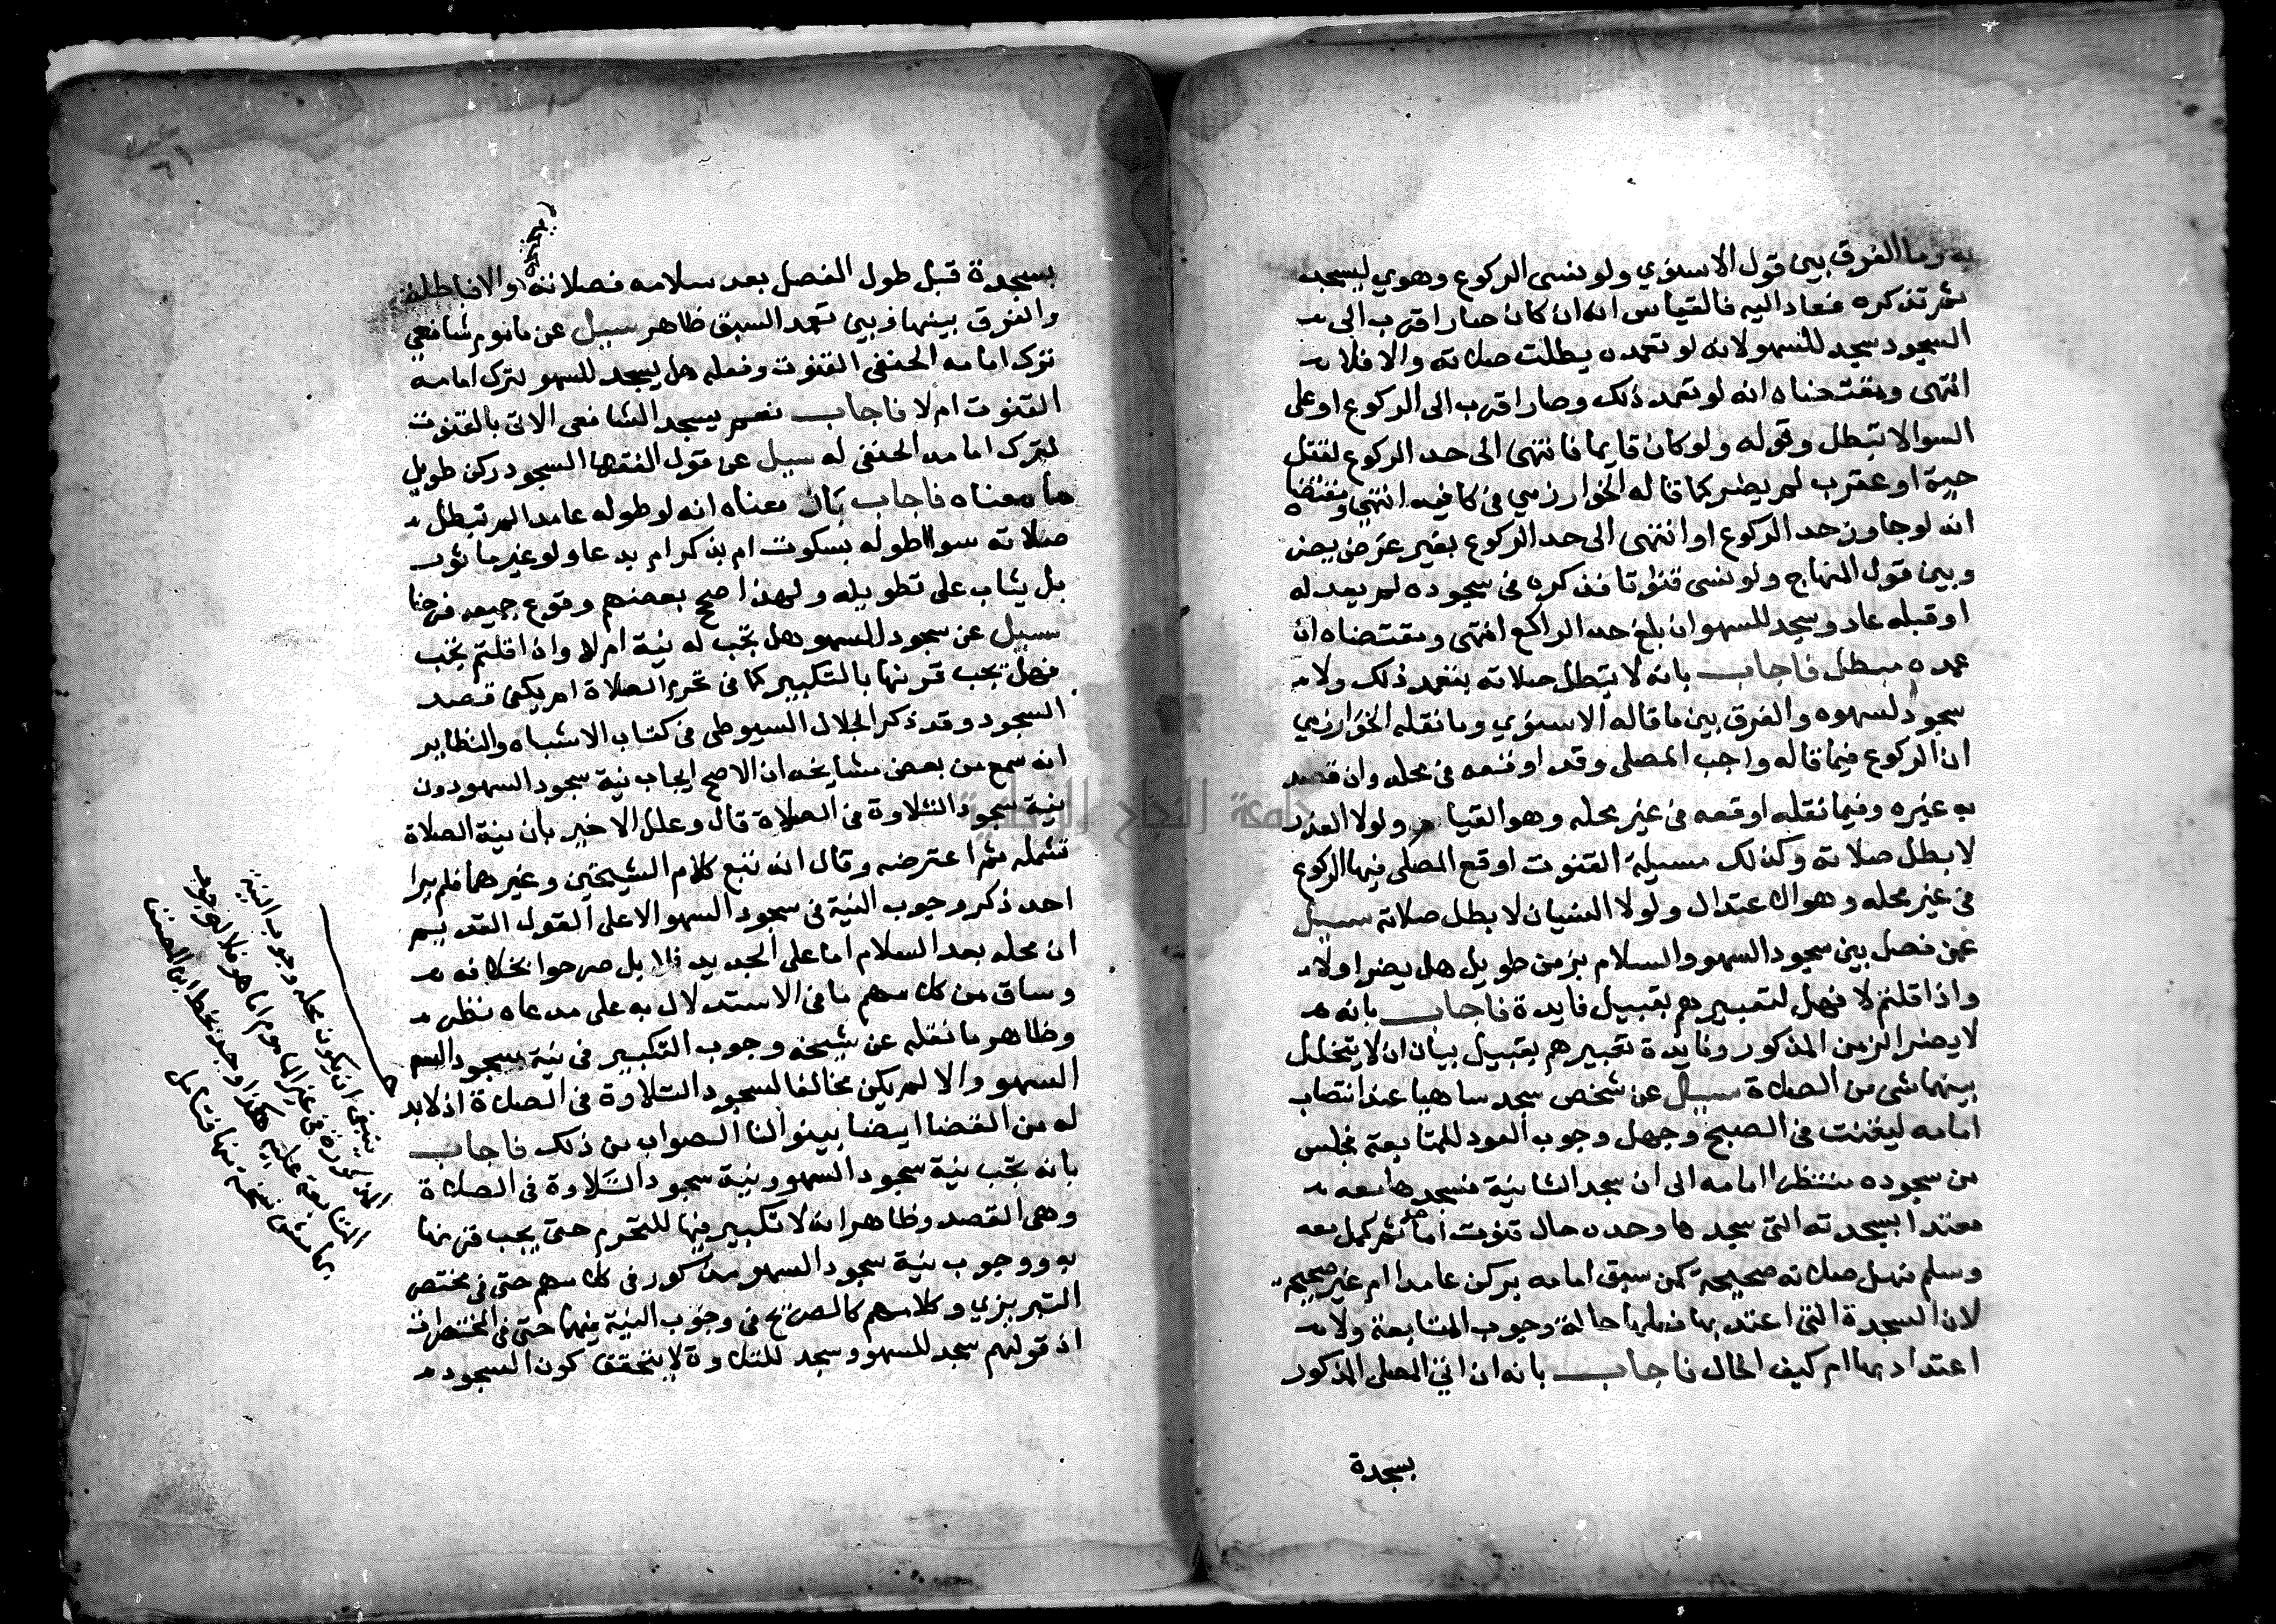 به وما الفرق بين قول الاسنوي ولو نسى الركوع وهوي ليسجد
ثم تذكره فعاد اليه فالقياس انه ان كان صار اقرب الى
السجود سجد للسهو لانه لو تعمده بطلت صلاته والا فلا
انتهى ومقتضاه انه لو تعمد ذلك وصار اقرب الى الركوع او على
السوا لا تبطل وقوله ولو كان قايما فانتهى الى حد الركوع لقتل
حية او عقرب لم يضر كما قاله الخوارزمي في كافيه انتهى ومقتضاه
انه لو جاوز حد الركوع او انتهى الى حد الركوع بغير غرض يضر
وبين قول المنهاج ولو نسى قنوتا فذكره في سجوده لم يعد له
او قبله عاد وسجد للسهو ان بلغ حد الراكع انتهى ومقتضاه ان
عمده مبطل فاجاب بانه لا تبطل صلاته بتعمد ذلك ولا
سجود لسهوه والفرق بين ما قاله الاسنوي وما نقله الخوارزمي
ان الركوع فيما قاله واجب المصلى وقد اوقعه في محله وان قصد
به غيره وفيما نقله اوقعه في غير محله وهو القيام ولولا العذر
لابطل صلاته وكذلك مسيلة القنوت اوقع المصلى فيها الركوع
في غير محله وهو الاعتدال ولولا النسيان لابطل صلاته سييل
عمن فصل بين سجود السهو والسلام بزمن طويل هل يضر اولا
واذا قلتم لا فهل لتعبيرهم بقبيل فايدة فاجاب بانه
لا يضر الزمن المذكور وفايدة تعبيرهم بقبيل بيان ان لا يتخلل
بينهما شى من الصلاة سييل عن شخص سجد ساهيا عند انتصاب
امامه ليقنت في الصبح وجهل وجوب العود للمتابعة فجلس
من سجوده منتظرا امامه الى ان سجد الثانية فسجدها معه
معتدا بسجدته التى سجدها وحده حال قنوت امامه ثم كمل معه
وسلم فهل صلاته صحيحة كمن سبق امامه بركن عامدا ام غير صحيحة
لان السجدة التى اعتد بها فعلها حالة وجوب المتابعة ولا
اعتداد بها ام كيف الحال فاجاب بانه ان اتى المصلى المذكور
بسجدة
بسجدة قبل طول الفصل بعد سلامه فصلاته والا فباطلة
صحيحة
والفرق بينها وبين تعمد السبق ظاهر سييل عن ماموم شافعي
ترك امامه الحنفى القنوت وفعله هل يسجد للسهو لترك امامه
القنوت ام لا فاجاب نعم يسجد الشافعى الاتى بالقنوت
لترك امامه الحنفى له سييل عن قول الفقها السجود ركن طويل
ما معناه فاجاب بان معناه انه لو طوله عامدا لم تبطل
صلاته سوا طوله بسكوت ام بذكر ام بدعا ولو غير ماثور
بل يثاب على تطويله ولهذا صح بعضهم وقوع جميعه فرضا
سييل عن سجود السهو هل تجب له نية ام لا وان اقلتم تجب
فهل يجب قرنها بالتكبير كما في تحرم الصلاة ام يكفى قصد
السجود وقد ذكر الجلال السيوطى في كتاب الاشباه والنظاير
انه سمع من بعض مشايخه ان الاصح ايجاب نية سجود السهو دون
نية سجود التلاوة في الصلاة قال وعلل الاخير بان نية الصلاة
تشمله ثم اعترضه وقال انه تتبع كلام الشيخين وغيرهما فلم ير
احد ذكر وجوب النية في سجود السهو الا على القول القديم
ان محله بعد السلام اما على الجديد فلا بل صرحوا بخلافه
وساق من كلامهم ما في الاستدلال به على مدعاه نظر
وظاهر ما نقله عن شيخه وجوب التكبير في نية سجود السهو
السهو والا لم يكن مخالفا لسجود التلاوة في الصلاة اذ لا بد
له من القضا ايضا بينوا لنا الصواب من ذلك فاجاب
بانه تجب نية سجود السهو ونية سجود التلاوة في الصلاة
وهى القصد وظاهر انه لا تكبير فيها للتحرم حتى يجب قرنها
به ووجوب نية سجود السهو مذكور في كلامهم حتى في مختصر
التبريزي وكلامهم كالصريح في وجوب النية فيهما حتى في المختصرات
اذ قولهم سجد للسهو وسجد للتلاوة لا يتحقق كون السجود
ينبغى ان يكون محله وجوب النية
المذكورة في غير الماموم اما هو فلا لوجوب
المتابعة عليه هكذا وجد بخط ابن المصنف
بهامش نسخة منها فتامل